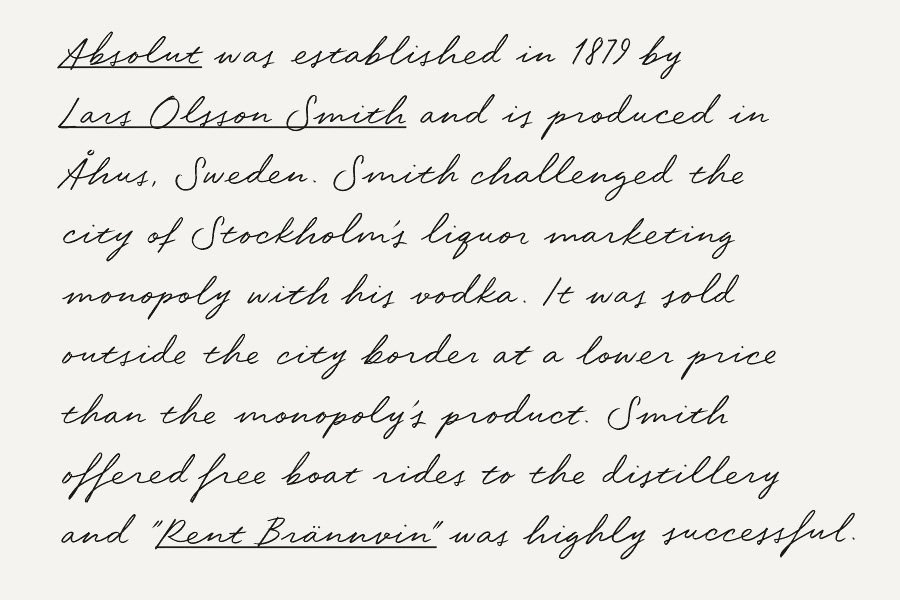 Absolut was established in 1879 by
Lars Olsson Smith and is produced in
Åhus, Sweden. Smith challenged the
city of Stockholm's liquor marketing
monopoly with his vodka. It was sold
outside the city border at a lower price
than the monopoly's product. Smith
offered free boat rides to the distillery
and "Rent Brännvin" was highly successful.